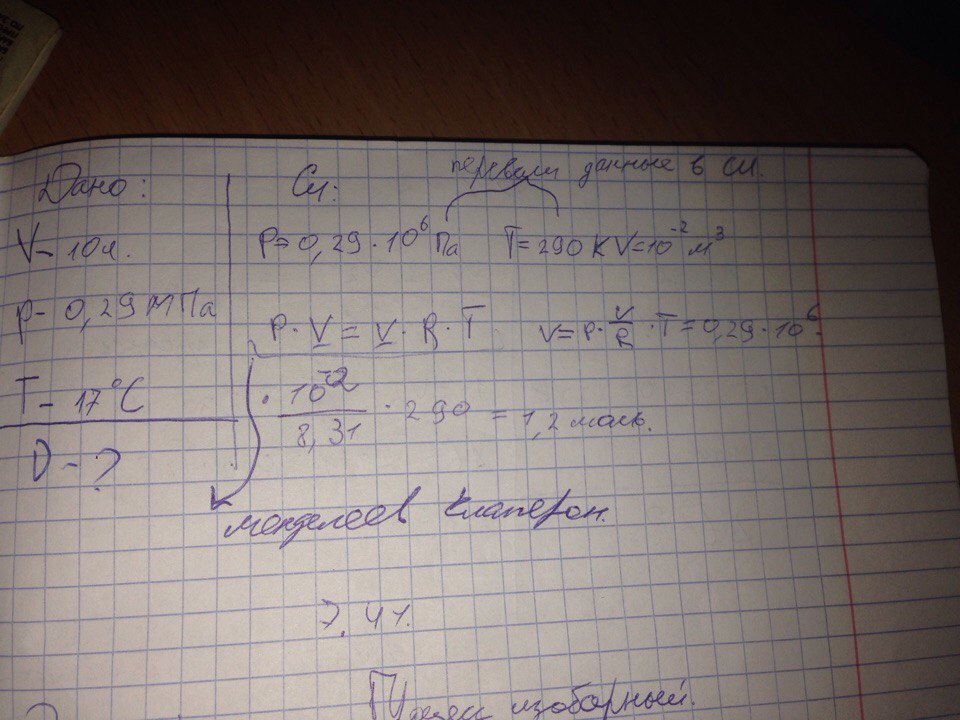 Дано:
V- 10л.
p- 0,29 МПа
T- 17°C
D-?
Си:
перевели данные в СИ.
P=0,29·10⁶ Па T=290 K V=10⁻² м³
P·V=V·R·T V=P·V/R·T=0,29·10⁶·
·10⁻²/8,31·290=1,2 моль.
менделеев клаперон.
7.41.
Процесс изобарный.